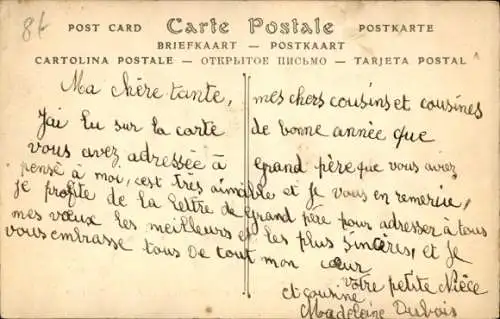 8f
POST CARD Carte Postale POSTKARTE
BRIEFKAART — POSTKAART
CARTOLINA POSTALE — ОТКРЫТОЕ ПИСЬМО — TARJETA POSTAL
Ma chère tante, mes chers cousins et cousines
J'ai lu sur la carte de bonne année que
vous avez adressée à grand père que vous aviez
pensé à moi, c'est très aimable et je vous en remercie,
je profite de la lettre de grand père pour adresser à tous
mes vœux les meilleurs et les plus sincères, et je
vous embrasse tous de tout mon cœur
votre petite Nièce
et cousine
Madeleine Dubois